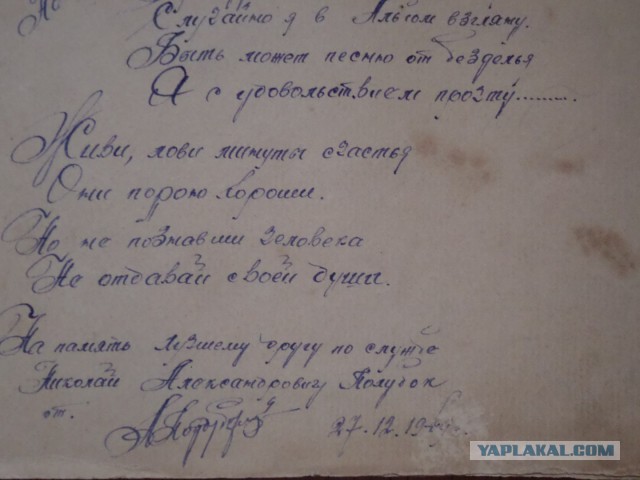 Но
Случайно я в Альбом взгляну.
Быть может песню от безделья
Я с удовольствием прочту..........
Живи, лови минуты счастья
Они порою хороши.
Но не познавши человека
Не отдавай своей души.
На память лучшему другу по службе
Николай Александровичу Полубок
от.
27.12.19
YAPLAKAL.COM